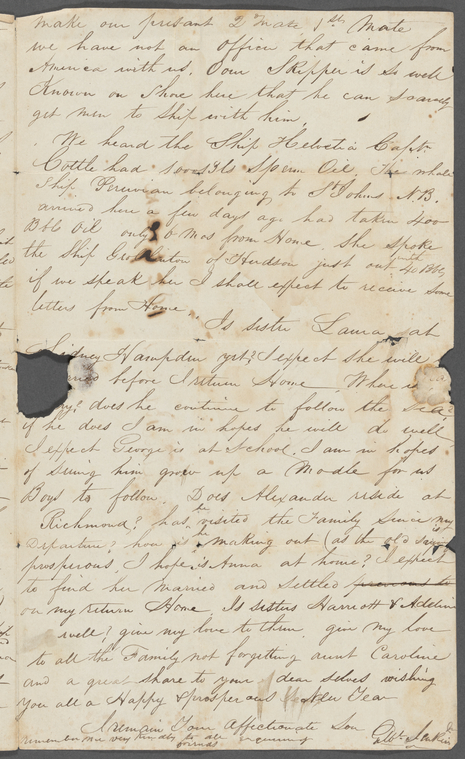 make our presant 2 Mate 1st Mate
we have not an officer that came from
America with us. Our Skipper is so well
Known on Shore here that he can scarcely
get men to Ship with him.
We heard the Ship Helvetia Capt.
Cottle had 1000 Bls Sperm Oil. The whale
Ship Peruvian belonging to St Johns N.B.
arrived here a few days ago had taken 400
Bbls Oil only 8 Mos from Home. She spoke
the Ship of Hudson just out with 40 Bbls
if we speak her I should expect to receive some
letters from Home
Is sister Laura at
Sidney Hampden yet? I expect she will
before I return Home. Where is
does he continue to follow the Sea?
if he does I am in hopes he will do well
I expect George is at School. I am in hopes
of seeing him grow up a Modle for us
Boys to follow. Does Alexander reside at
Richmond? has he visited the Family since my
Departure? how is he making out (as the old saying is)
prosperous, I hope. is Anna at home? I expect
to find her Married and settled previous to
on my return Home. Is sisters Harriott & Adeline
well? give my love to them. give my love
to all the Family not forgetting aunt Caroline
and a great share to your dear selves wishing
You all a Happy & prosperous New Year
I remain Your Affectionate Son
remember me very kindly to all inquiring
friends